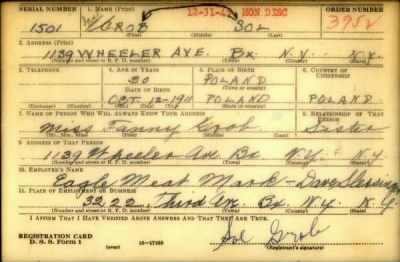 SERIAL NUMBER 1. NAME (Print) 12-31-42 HON DISC ORDER NUMBER
1501 GROB SOL 3952
(First) (Middle) (Last)
2. ADDRESS (Print)
1139 WHEELER AVE. Bx. N.Y. N.Y.
(Number and street or R. F. D. number) (Town) (County) (State)
3. TELEPHONE 4. AGE IN YEARS 5. PLACE OF BIRTH 6. COUNTRY OF CITIZENSHIP
30 POLAND
DATE OF BIRTH (Town or county)
OCT. 12-1911 POLAND POLAND
(Exchange) (Number) (Mo.) (Day) (Yr.) (State or country)
7. NAME OF PERSON WHO WILL ALWAYS KNOW YOUR ADDRESS 8. RELATIONSHIP OF THAT PERSON
Miss Fanny Grob Sister
(Mr., Mrs., Miss) (First) (Middle) (Last)
9. ADDRESS OF THAT PERSON
1139 Wheeler Ave Bx N.Y. N.Y.
(Number and street or R. F. D. number) (Town) (County) (State)
10. EMPLOYER'S NAME
Eagle Meat Mark - Dave
11. PLACE OF EMPLOYMENT OR BUSINESS
3222 Third Av. Bx. N.Y. N.Y.
(Number and street or R. F. D. number) (Town) (County) (State)
I AFFIRM THAT I HAVE VERIFIED ABOVE ANSWERS AND THAT THEY ARE TRUE.
REGISTRATION CARD
D. S. S. Form 1 Sol Grob
(Registrant's signature)